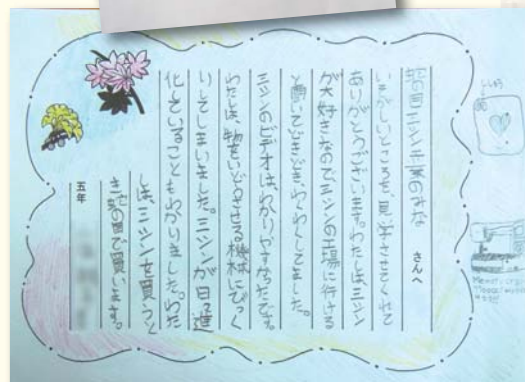 蛇の目ミシン工業のみな さんへ
いそがしいところを、見学させてくれて
ありがとうございます。わたしは、ミシン
が大好きなのでミシンの工場に行ける
と聞いてどきどき、わくわくしてました。
ミシンのビデオは、わかりやすかったです。
わたしは、物をいどうさせる機械にびっく
りしてしまいました。ミシンが日々進
化していることもわかりました。わた
しは、ミシンを買うと
き蛇の目で買います。
五年
ししゅう